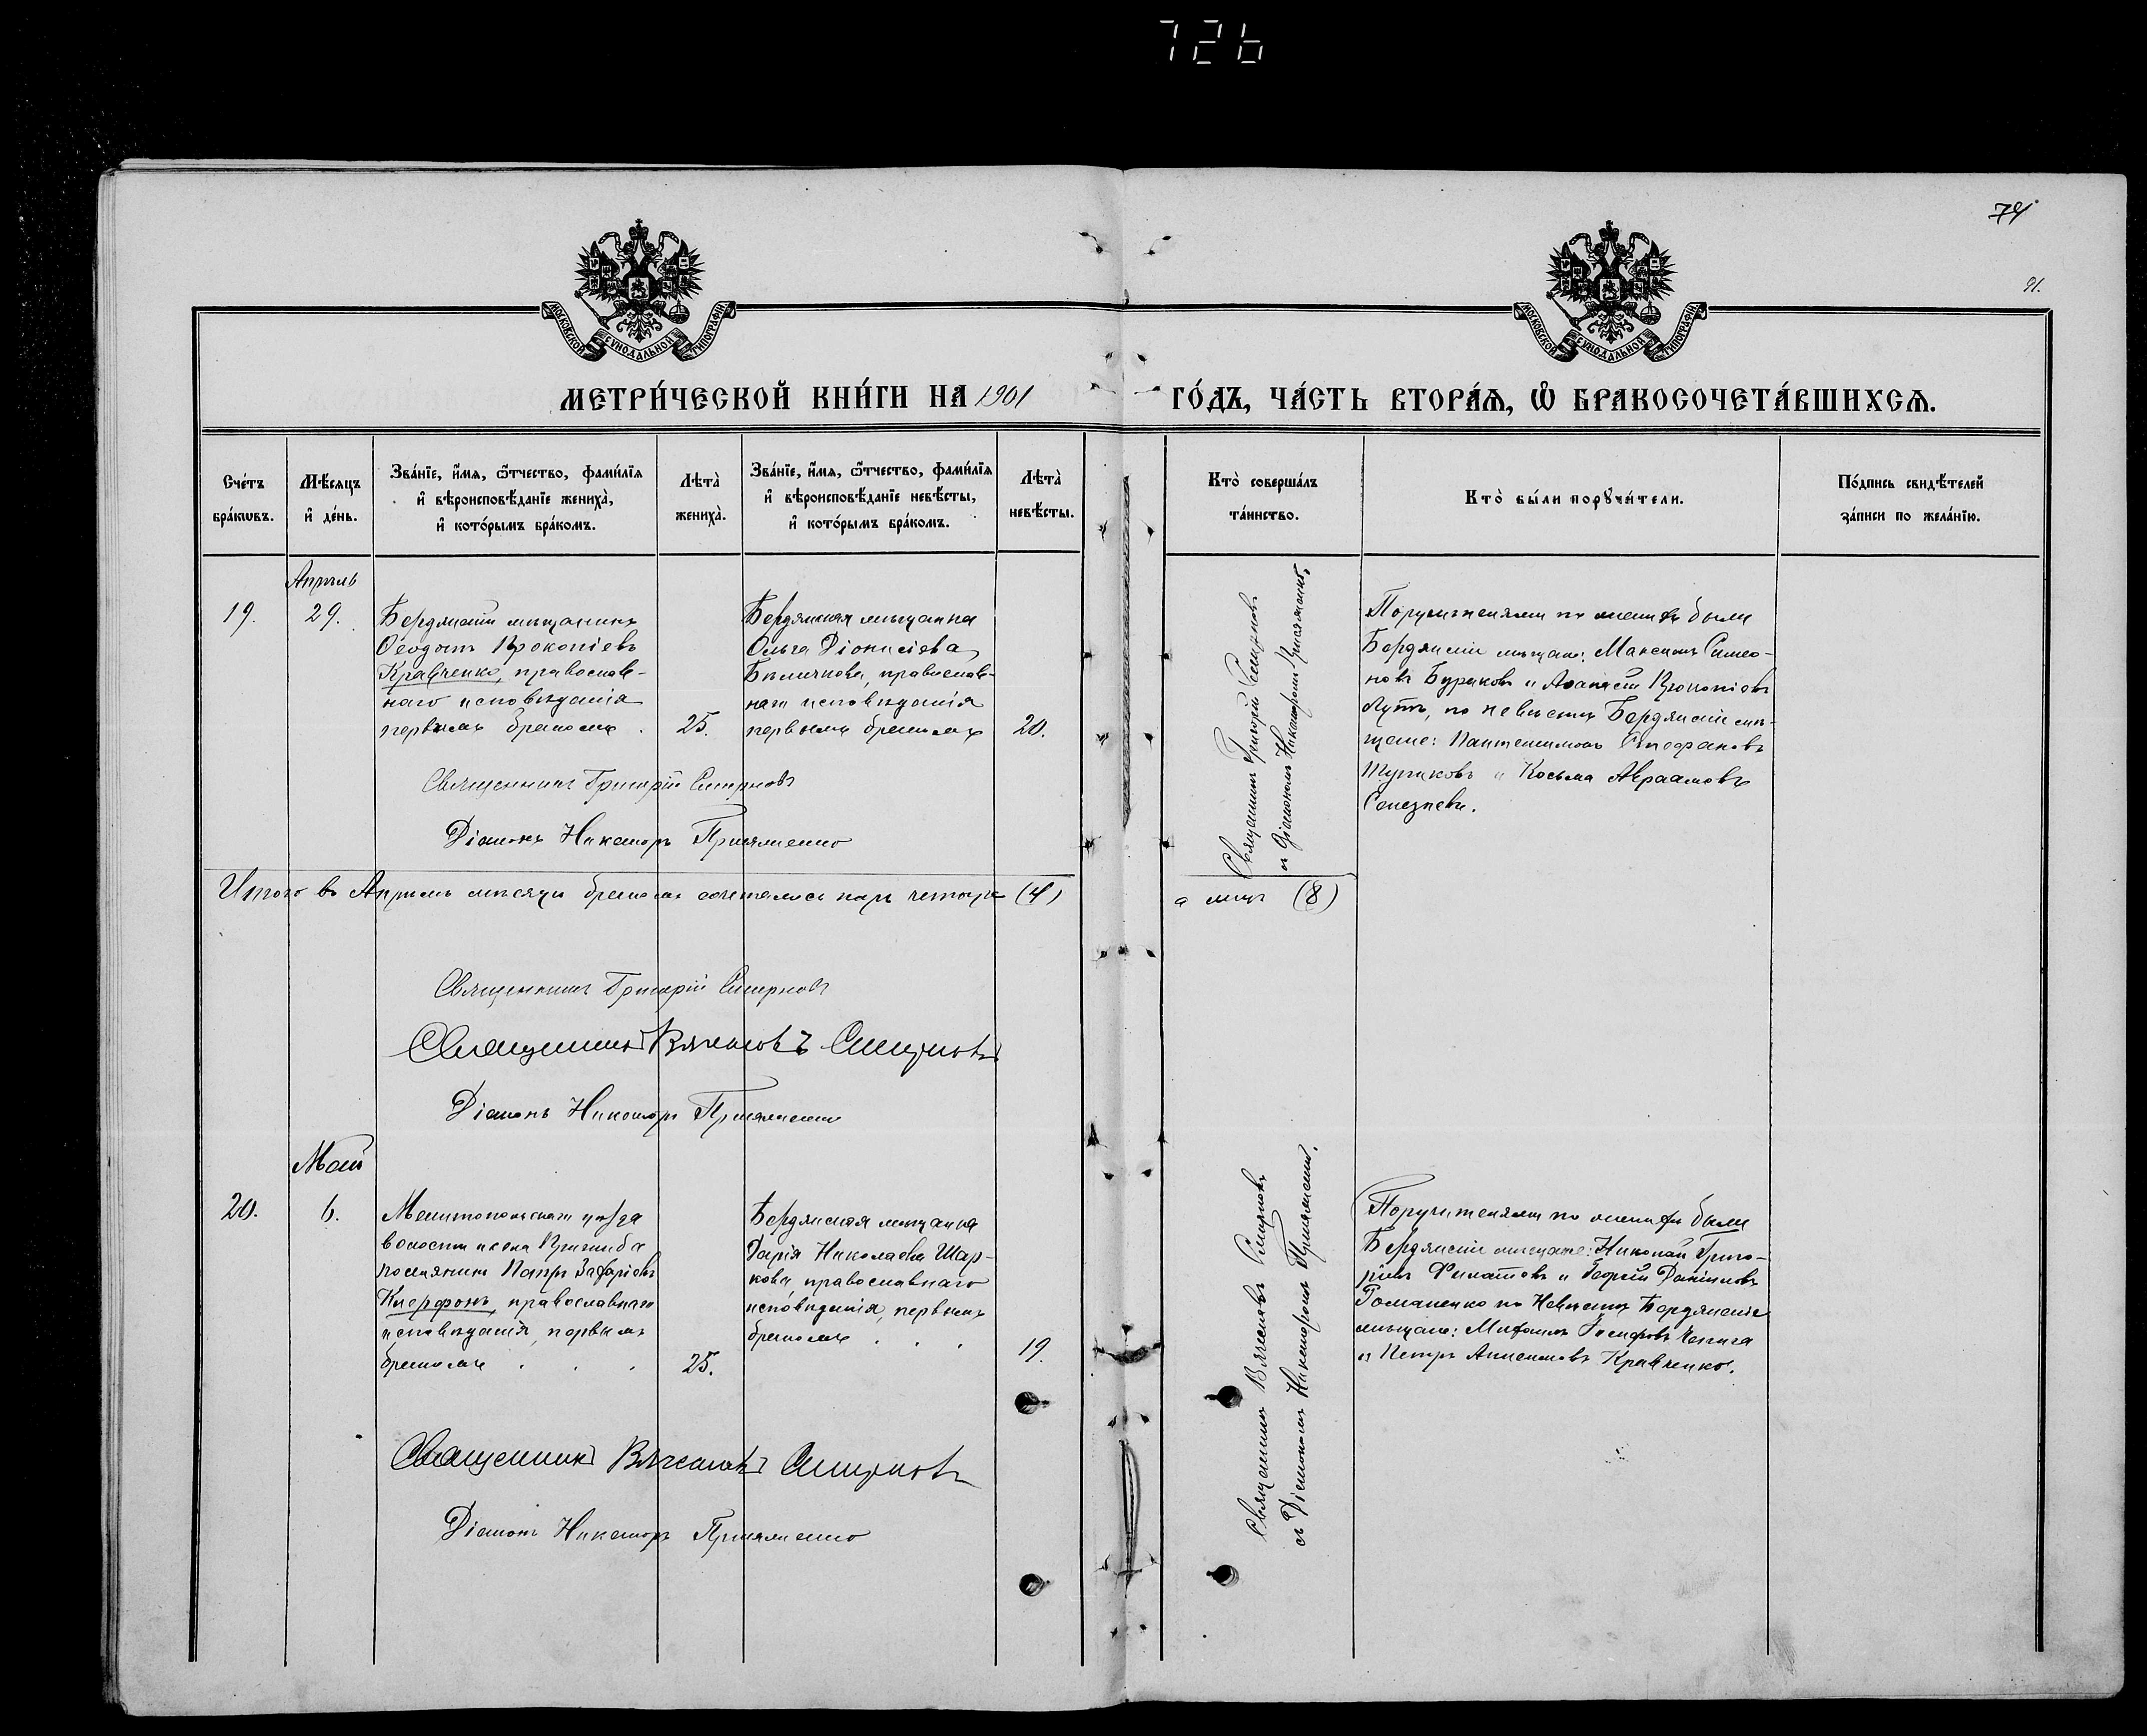 726
74
91.
МОСКОВСКОЙ СѴНОДАЛЬНОЙ ТИПОГРАФІИ
МОСКОВСКОЙ СѴНОДАЛЬНОЙ ТИПОГРАФІИ
МЕТРИ́ЧЕСКОЙ КНИ́ГИ НА 1901 ГО́ДЪ, ЧА́СТЬ ВТОРА́Ѧ, Ѡ҆ БРАКОСОЧЕТА́ВШИХСѦ.
Сче́тъ
бра́кѡвъ.
Мѣ́сяцъ
и҆ де́нь.
Зва́нїе, и҆́мя, ѻ҆́тчество, фами́лїя
и҆ вѣроисповѣ́данїе жениха̀,
и҆ кото́рымъ бра́комъ.
Лѣта̀
жениха̀.
Зва́нїе, и҆́мя, ѻ҆́тчество, фами́лїя
и҆ вѣроисповѣ́данїе невѣ́сты,
и҆ кото́рымъ бра́комъ.
Лѣта̀
невѣ́сты.
Кто̀ соверша́лъ
та́инство.
Кто̀ бы́ли порꙋчи́тели.
По́дпись свидѣ́телей
за́писи по жела́нїю.
Апрѣль
19.
29.
Бердянскій мѣщанинъ
Ѳеодотъ Прокопіевъ
Кравченко, православ-
наго исповѣданія
первымъ бракомъ .
25.
Бердянская мѣщанка
Ольга Діонисіева
православ-
наго исповѣданія
первымъ бракомъ
20.
Священникъ Григорій Смирновъ
съ Діакономъ Никаноромъ
Поручителями по женихѣ были
Бердянскіе мѣщане: Максимъ Симео-
новъ Буряковъ и Аѳанасій Прокопіевъ
по невѣстѣ Бердянскіе мѣ-
щане: Пантелимонъ Стефановъ
и Косьма Авраамовъ
Селезневъ.
Священникъ Григорій Смирновъ
Діаконъ Никаноръ
Итого въ Апрѣлѣ мѣсяцѣ бракомъ сочеталось паръ четыре (4)
а лицъ (8)
Священникъ Григорій Смирновъ
Священникъ Вячеславъ Смирновъ
Діаконъ Никаноръ
Май
20.
6.
Мелитопольскаго уѣзда
волости и села Пришиба
поселянинъ Петръ Захаріевъ
православнаго
исповѣданія, первымъ
бракомъ . . .
25.
Бердянская мѣщанка
Дарія Николаева Шар-
кова, православнаго
исповѣданія, первымъ
бракомъ . . .
19.
Священникъ Вячеславъ Смирновъ
съ Діакономъ Никаноромъ
Поручителями по женихѣ были
Бердянскіе мѣщане: Николай Григо-
рьевъ Филатовъ и Георгій Даніиловъ
Романенко по Невѣстѣ Бердянскіе
мѣщане: Михаилъ Іосифовъ
и Петръ Кравченко.
Священникъ Вячеславъ Смирновъ
Діаконъ Никаноръ